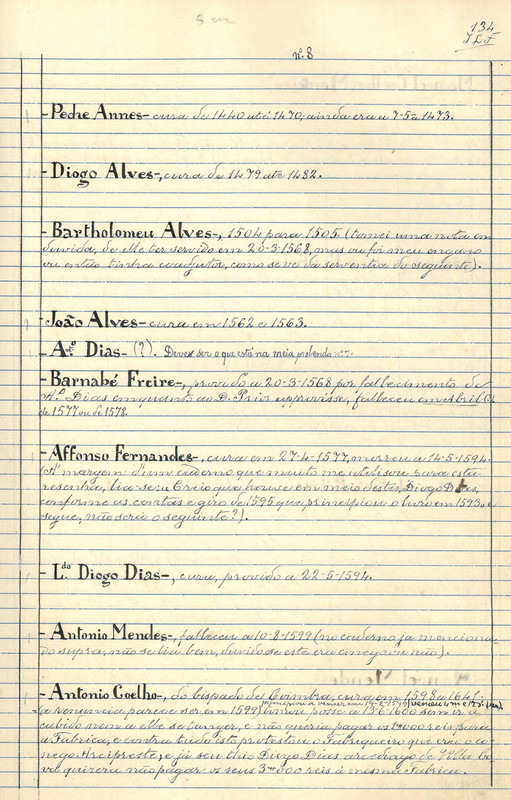 134
n.º 8
- Pedre Annes - cura de 1440 até 1470, ainda era a 7-5-1473.
- Diogo Alves -, cura de 1479 até 1482.
- Bartholomeu Alves -, 1504 para 1505 (tomei uma nota em
duvida, de elle ter servido em 20-3-1568, mas ou foi meu engano
ou então tinha coadjutor, como se vê da serventia do seguinte).
- João Alves - cura em 1562 e 1563.
- A.º Dias - (?). Deve ser o que está na meia prebenda n.º 7.
- Barnabé Freire -, provido a 20-3-1568 por fallecimento de
A.º Dias emquanto o D. Prior approvasse, falleceu em Abril
de 1577 ou de 1578.
- Affonso Fernandes -, cura em 27-4-1577, morreu a 14-5-1594.
(Á margem d'um caderno que muito me utilisou para esta
resenha, lia-se: Creio que houve em meio destes, Diogo Dias,
conforme as contas e giro de 1595 que principiou o livro em 1593, e
segue, não será o seguinte?).
- L.do Diogo Dias -, cura, provido a 22-5-1594.
- Antonio Mendes -, falleceu a 10-8-1599 (no caderno já menciona-
do supra, não se lia bem, duvido se este era conego ou não).
- Antonio Coelho -, do bispado de Coimbra, cura em 1598 a 1641:
a renuncia parece ser em 1599) tomou posse a 1600 sem ir a
cabido nem a elle se tanger, e não queria pagar os reis para
a Fabrica, e contra tudo isto protestou o Fabriqueiro que era o co-
nego Arcipreste, e já seu thio Diogo Dias arcediago de
quizera não pagar os seus 3 000 reis á mesma Fabrica.